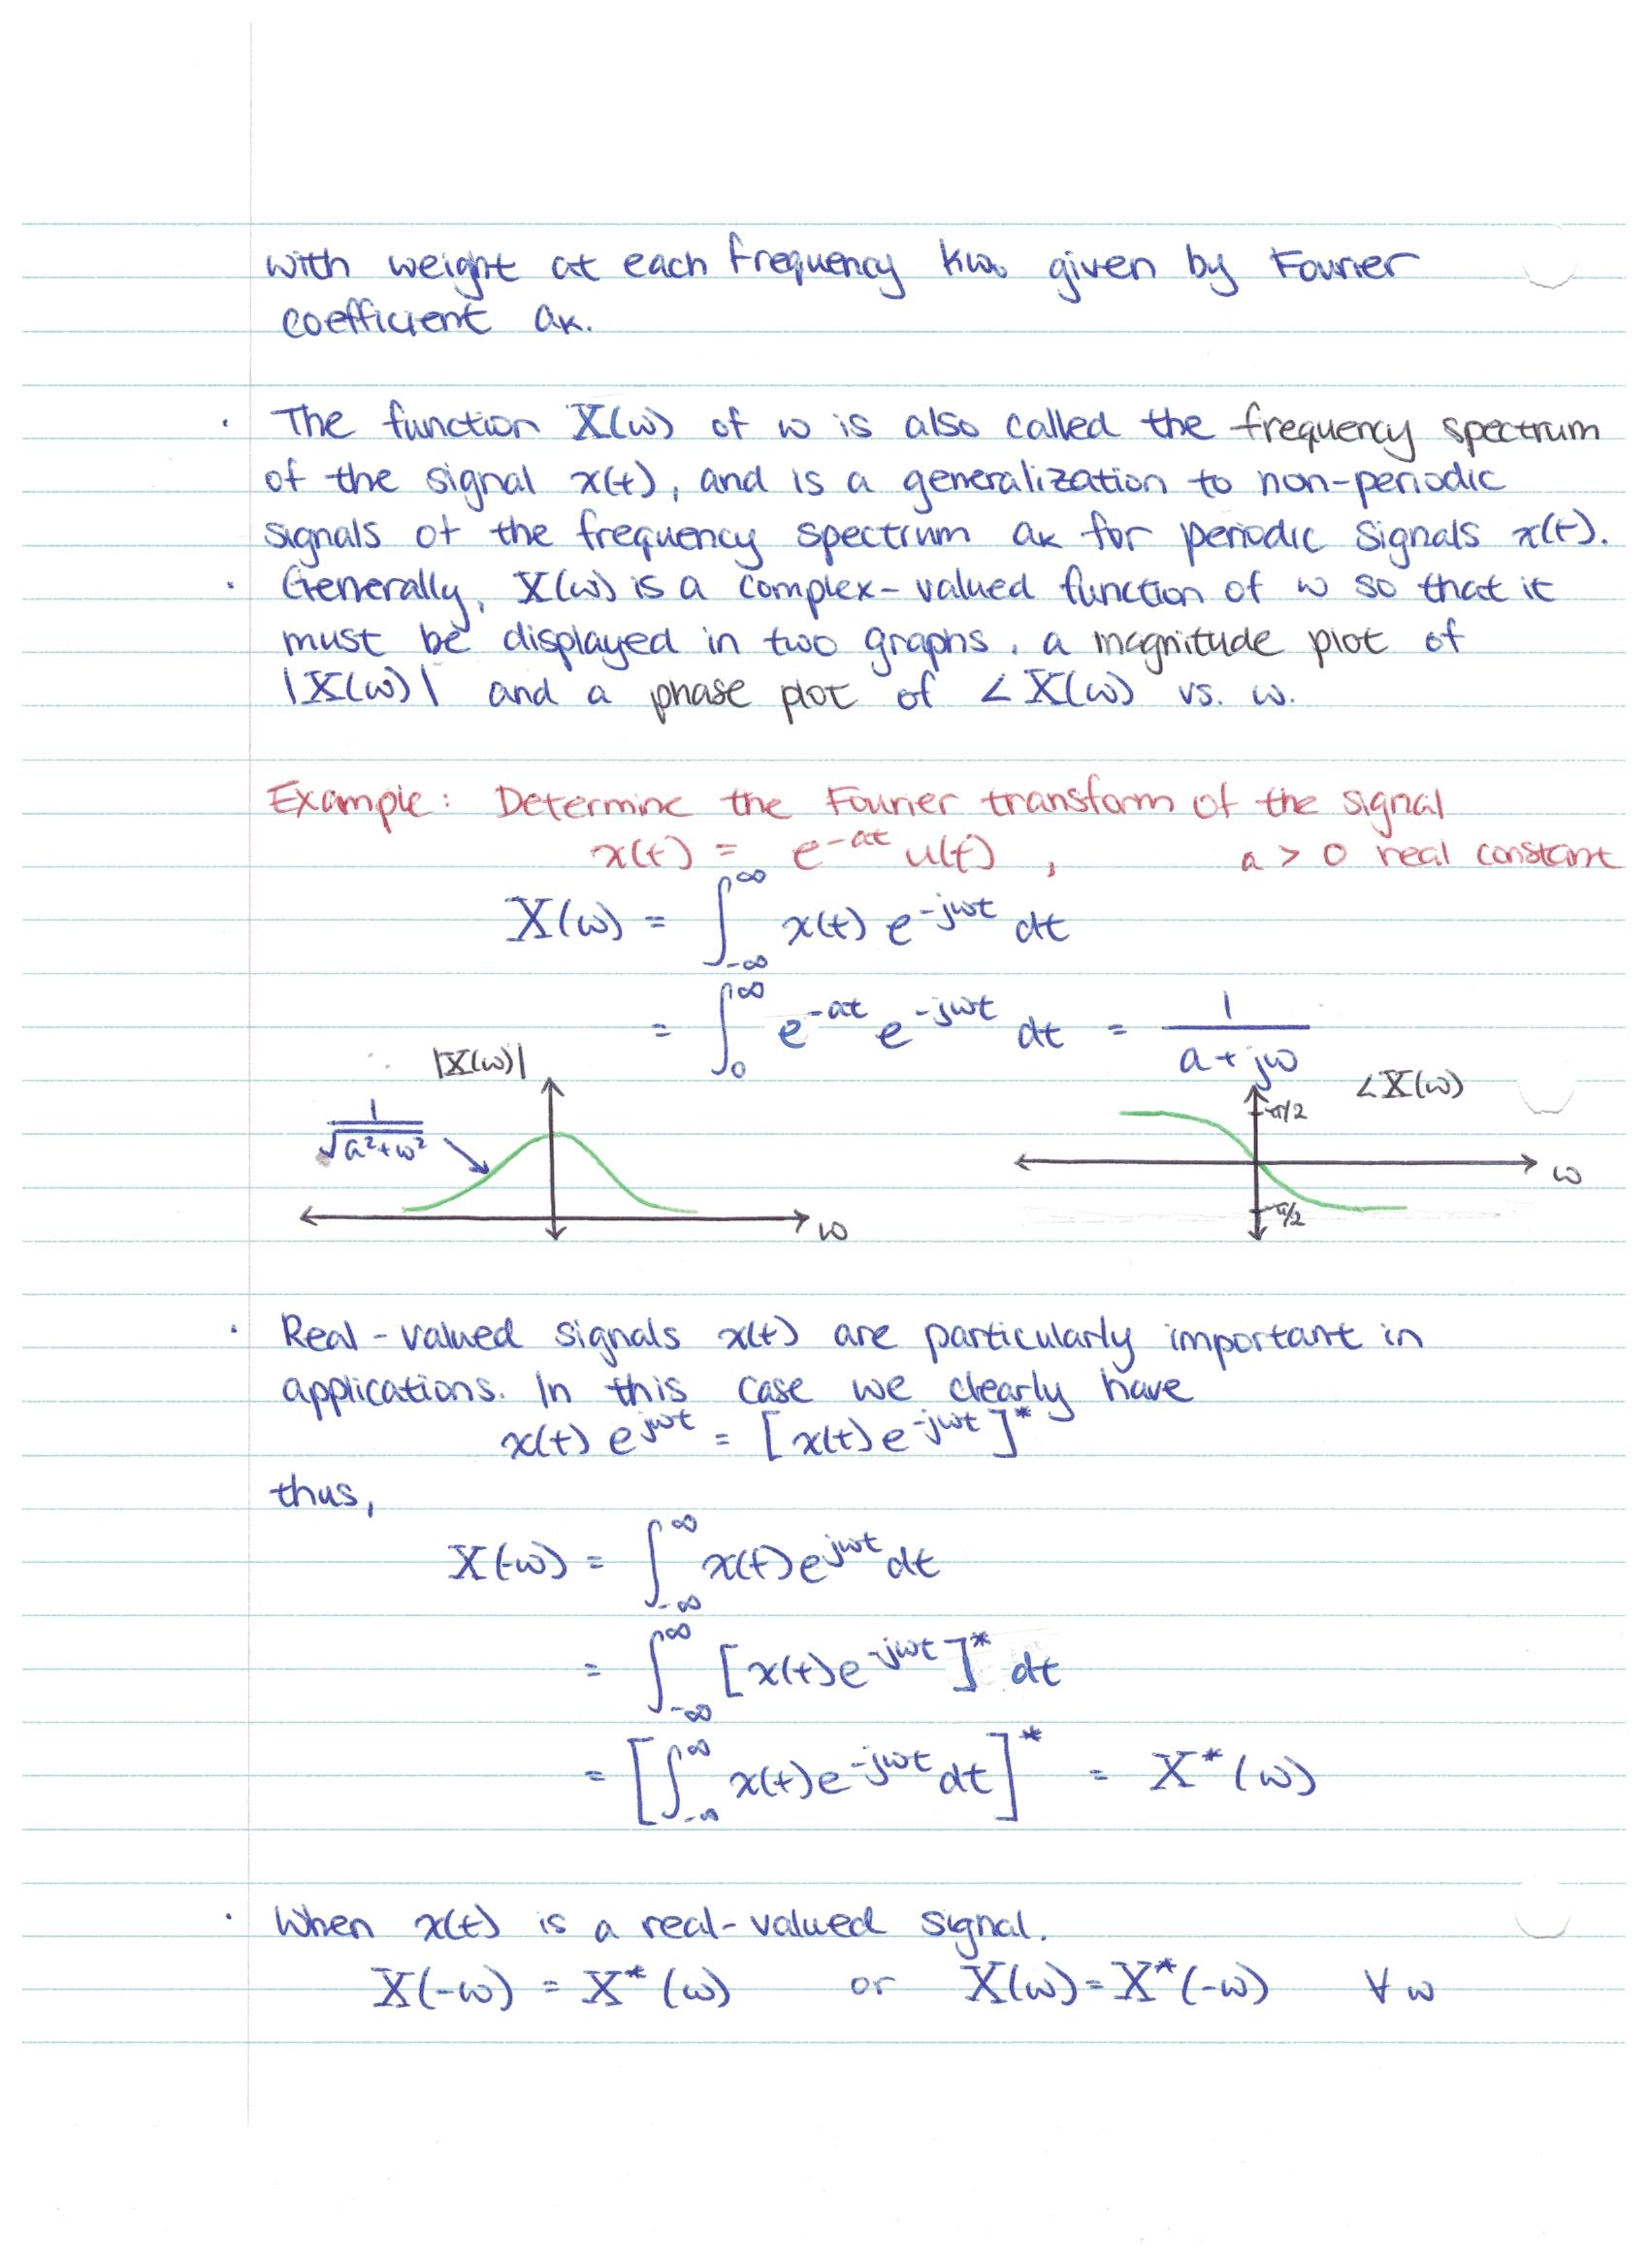 with weight at each frequency kω₀ given by Fourier
coefficient aₖ.
· The function X(ω) of ω is also called the frequency spectrum
of the signal x(t), and is a generalization to non-periodic
signals of the frequency spectrum aₖ for periodic signals x(t).
· Generally, X(ω) is a complex-valued function of ω so that it
must be displayed in two graphs, a magnitude plot of
|X(ω)| and a phase plot of ∠X(ω) vs. ω.
Example: Determine the Fourier transform of the signal
x(t) = e^{-at} u(t) , a > 0 real constant
X(ω) = ∫_{-∞}^{∞} x(t) e^{-jωt} dt
= ∫_{0}^{∞} e^{-at} e^{-jωt} dt = 1/(a+jω)
|X(ω)|
1/√(a²+ω²)
ω
∠X(ω)
π/2
ω
-π/2
· Real-valued signals x(t) are particularly important in
applications. In this case we clearly have
x(t) e^{jωt} = [x(t)e^{-jωt}]*
thus,
X(-ω) = ∫_{-∞}^{∞} x(t)e^{jωt} dt
= ∫_{-∞}^{∞} [x(t)e^{-jωt}]* dt
= [∫_{-∞}^{∞} x(t)e^{-jωt} dt]* = X*(ω)
· When x(t) is a real-valued signal.
X(-ω) = X*(ω) or X(ω) = X*(-ω) ∀ω